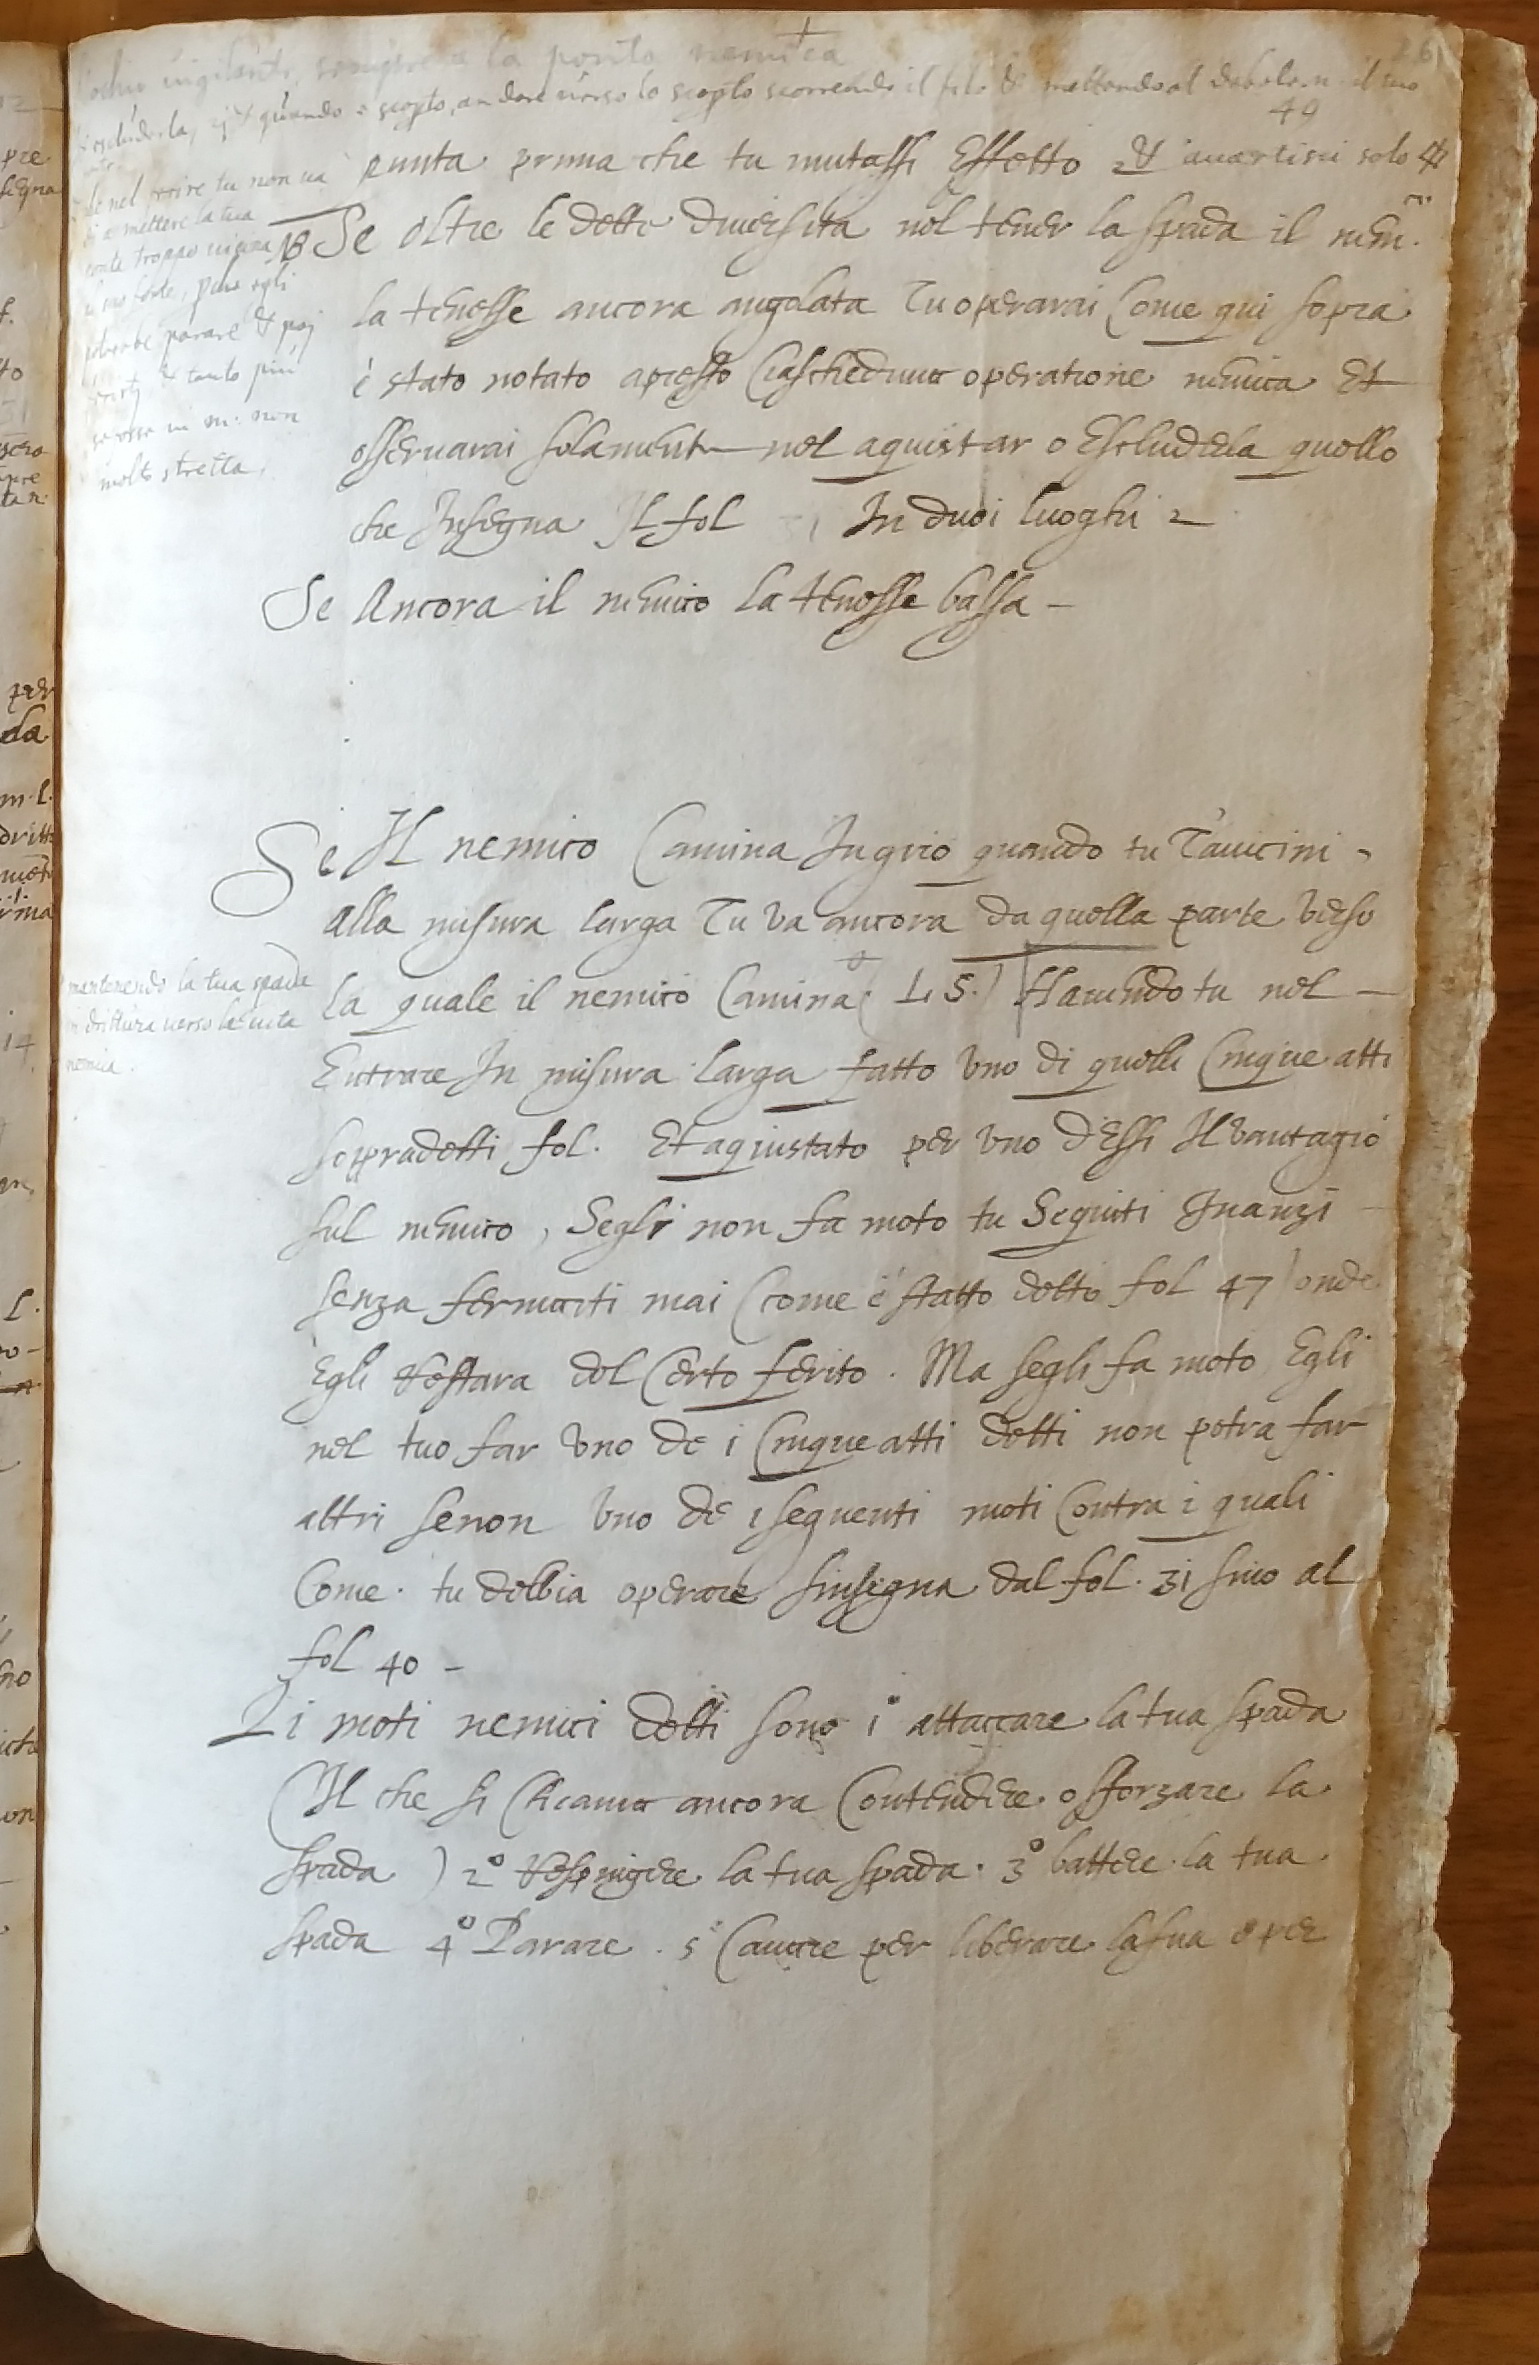 ochio vigilante, sempre a la ponta nemica
escluderla, et quando è scopto, andare verso lo scopto scorrendo il filo & mettendo al debole n. il tuo
49
punta prima che tu mutassi Effetto et avartisci solo #
che nel ferire tu non va
di a mettere la tua
ponta troppo vicina
il suo forte, plus egli
potrebbe parare et poi
ferirti et tanto più
se esso in m. non
molto stretta.
18 Se oltre le dette diversita nel tener la spada il nem.
la tenesse ancora angolata Tu operarai Come qui sopra
è stato notato apresso Ciascheduna operatione nemica Et
osservarai solamente nel aquistar o Escluderla quello
che Insegna Il fol 31 In duoi luoghi 2
Se Ancora il nemico la tenesse bassa –
Se Il nemico Camina In giro quando tu T'avicini
alla misura larga Tu va ancora da quella parte verso
la quale il nemico Camina ( L. S.) Havendo tu nel –
mantenendo la tua spada
in drittura verso la vita
nemica.
Entrare In misura larga fatto uno di quelli Cinque atti
sopradetti fol. Et agiustato per uno d'Essi Il vantagio
sul nemico, Segli non fa moto tu Seguiti Inanzi –
senza fermarti mai (come è statto detto fol 47) onde
Egli Restara del Certo ferito. Ma segli fa moto Egli
nel tuo far uno de i Cinque atti detti non potra far
altri senon uno de i seguenti moti Contra i quali
Come tu debbia operare s'insegna dal fol. 31 sino al
fol 40 –
Li moti nemici detti sono 1° attaccare la tua spada
(Il che si Chiama ancora Contendere o sforzare la
spada ) 2° Respingere la tua spada. 3° battere la tua
spada 4° Parare. 5° Cavare per liberare la sua o per